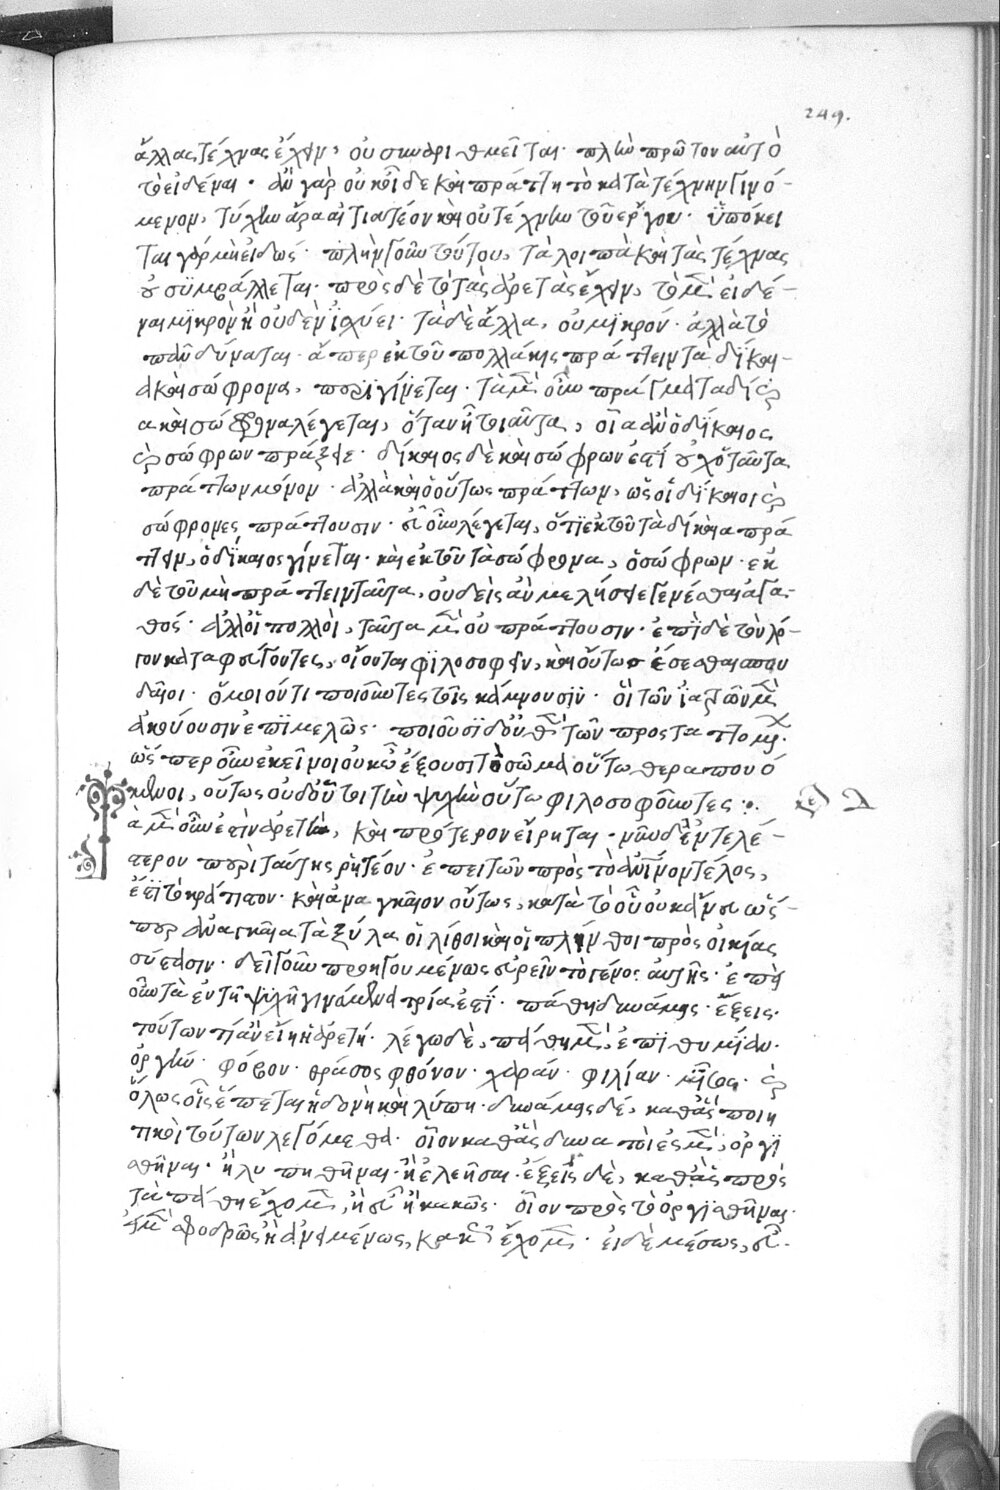 249.
ἄλλας τέχνας ἔχειν, οὐ συναριθμεῖται· πλὴν πρῶτον αὐτὸ
τὸ εἰδέναι· ἂν γὰρ οὐκ οἶδε καὶ πράττῃ τὸ κατὰ τέχνην γινό-
μενον, τύχην ἄρα αἰτιατέον καὶ οὐ τέχνην τοῦ ἔργου· ὑπόκει
ται γὰρ μὴ εἰδώς· πλὴν γοῦν τούτου, τὰ λοιπὰ καὶ τὰς τέχνας
οὐ συμβάλλεται· πρὸς δὲ τὸ τὰς ἀρετὰς ἔχειν, τὸ μὲν εἰδέ-
ναι μικρὸν ἢ οὐδὲν ἰσχύει· τὰ δὲ ἄλλα, οὐ μικρόν· ἀλλὰ τὸ
πᾶν δύναται· ἅπερ ἐκ τοῦ πολλάκις πράττειν τὰ δίκαι-
α καὶ σώφρονα, περιγίνεται· τὰ μὲν οὖν πράγματα δίκαι
α καὶ σώφρονα λέγεται, ὅταν ᾖ τοιαῦτα, οἷα ἂν ὁ δίκαιος
καὶ σώφρων πράξειε· δίκαιος δὲ καὶ σώφρων ἐστὶ οὐχ ὁ ταῦτα
πράττων μόνον· ἀλλὰ καὶ ὁ οὕτως πράττων, ὡς οἱ δίκαιοι καὶ
σώφρονες πράττουσιν· εὖ οὖν λέγεται, ὅτι ἐκ τοῦ τὰ δίκαια πρά
ττειν, ὁ δίκαιος γίνεται· καὶ ἐκ τοῦ τὰ σώφρονα, ὁ σώφρων· ἐκ
δὲ τοῦ μὴ πράττειν ταῦτα, οὐδεὶς ἂν μελήσειε γενέσθαι ἀγα-
θός· ἀλλ' οἱ πολλοὶ, ταῦτα μὲν οὐ πράττουσιν· ἐπὶ δὲ τὸν λό-
γον καταφεύγοντες, οἴονται φιλοσοφεῖν, καὶ οὕτως ἔσεσθαι σπου
δαῖοι· ὅμοιόν τι ποιοῦντες τοῖς κάμνουσιν· οἳ τῶν ἰατρῶν μὲν
ἀκούουσιν ἐπιμελῶς· ποιοῦσι δ' οὐθὲν τῶν προσταττομένων·
ὥσπερ οὖν ἐκεῖνοι οὐκ εὖ ἕξουσι τὸ σῶμα οὕτω θεραπευό
μενοι, οὕτως οὐδ' οὗτοι τὴν ψυχὴν οὕτω φιλοσοφοῦντες :.
ἃ μὲν οὖν ἐστὶν ἀρετὴ, καὶ πρότερον εἴρηται· νῦν δὲ ἐντελέ-
στερον περὶ ταύτης ῥητέον· ἐπεὶ τῶν πρὸς τὸ ἀνύσιμον τέλος,
ἐστὶ τὸ κράτιστον· καὶ ἅμα ἀναγκαῖον οὕτως, κατὰ τὸ οὗ οὐκ ἄνευ ὥσ-
περ ἀναγκαῖα τὰ ξύλα οἱ λίθοι καὶ οἱ πλίνθοι πρὸς οἰκίας
σύστασιν· δεῖ γοῦν προηγουμένως εὑρεῖν τὸ γένος αὐτῆς· ἐπεὶ
οὖν τὰ ἐν τῇ ψυχῇ γινόμενα τρία ἐστί· πάθη δυνάμεις· ἕξεις·
τούτων τι ἂν εἴη ἡ ἀρετή· λέγω δὲ, πάθη μὲν, ἐπιθυμίαν·
ὀργήν· φόβον· θράσος φθόνον· χαράν· φιλίαν· μῖσος· καὶ
ὅλως οἷς ἕπεται ἡδονὴ καὶ λύπη· δυνάμεις δέ, καθ' ἃς ποιη
τικοὶ τούτων λεγόμεθα· οἷον καθ' ἃς δυνατοί ἐσμεν, ὀργι
σθῆναι· ἢ λυπηθῆναι· ἢ ἐλεῆσαι· ἕξεις δὲ, καθ' ἃς πρὸς
τὰ πάθη ἔχομεν, ἢ εὖ ἢ κακῶς· οἷον πρὸς τὸ ὀργισθῆναι·
εἰ μὲν σφοδρῶς ἢ ἀνειμένως, κακῶς ἔχομεν· εἰ δὲ μέσως, εὖ·